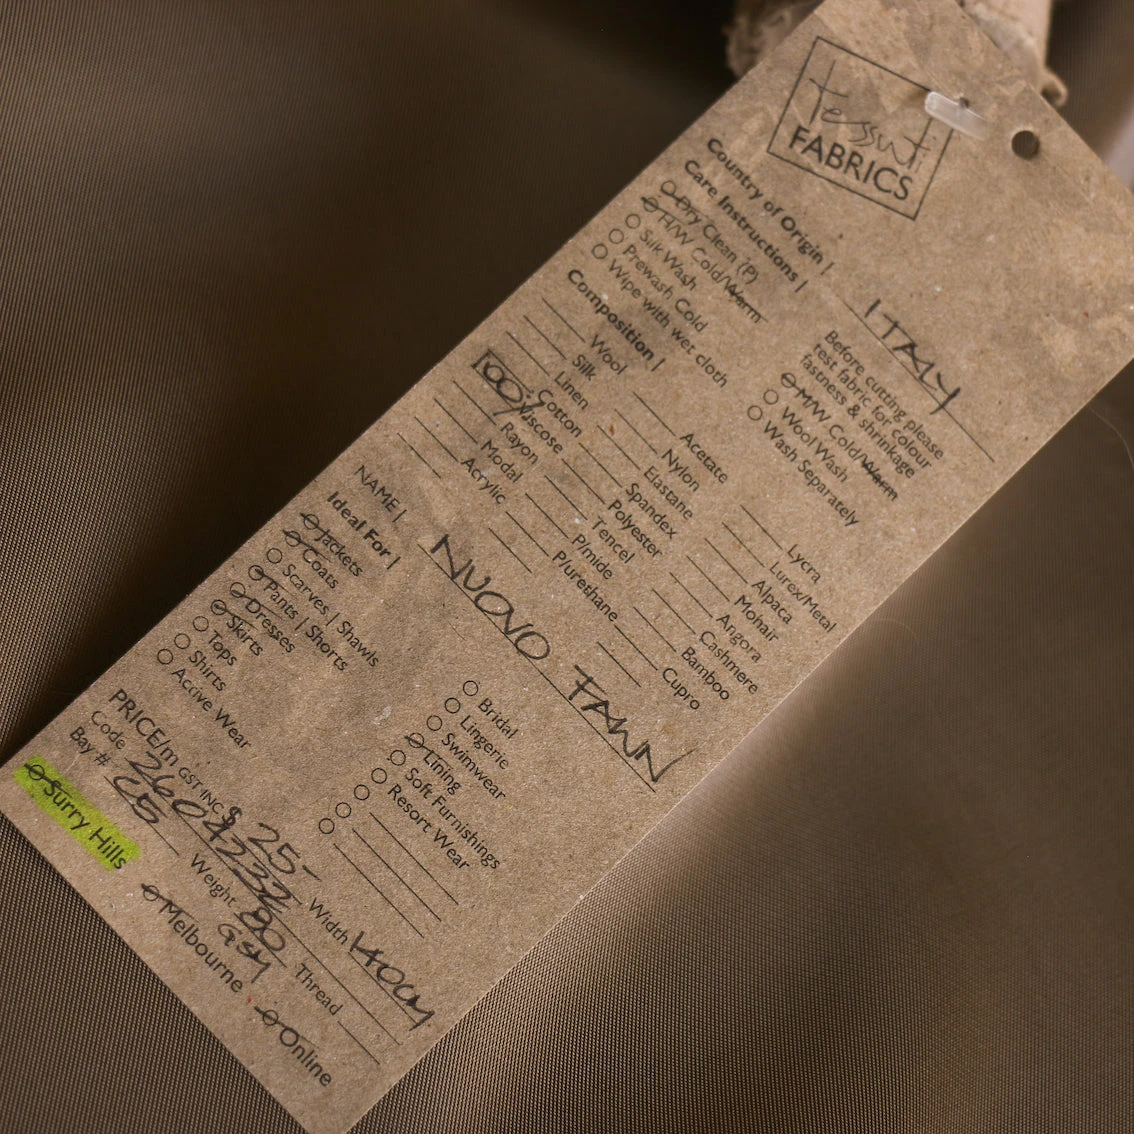 tessuti
FABRICS
Country of Origin | ITALY
Care Instructions |
Dry Clean (P)
H/W Cold/Warm
Silk Wash
Prewash Cold
Wipe with wet cloth
Before cutting please
test fabric for colour
fastness & shrinkage
M/W Cold/Warm
Wool Wash
Wash Separately
Composition |
Wool
Silk
Linen
Cotton
100% Viscose
Rayon
Modal
Acrylic
Acetate
Nylon
Elastane
Spandex
Polyester
Tencel
P/mide
P/urethane
Lycra
Lurex/Metal
Alpaca
Mohair
Angora
Cashmere
Bamboo
Cupro
NAME | NUOVO FAWN
Ideal For |
Jackets
Coats
Scarves | Shawls
Pants | Shorts
Dresses
Skirts
Tops
Shirts
Active Wear
Bridal
Lingerie
Swimwear
Lining
Soft Furnishings
Resort Wear
PRICE/m GST INC. $ 25-
Code Width 140CM
Bay # C5 Weight 80 GSM Thread
Surry Hills
Melbourne
Online